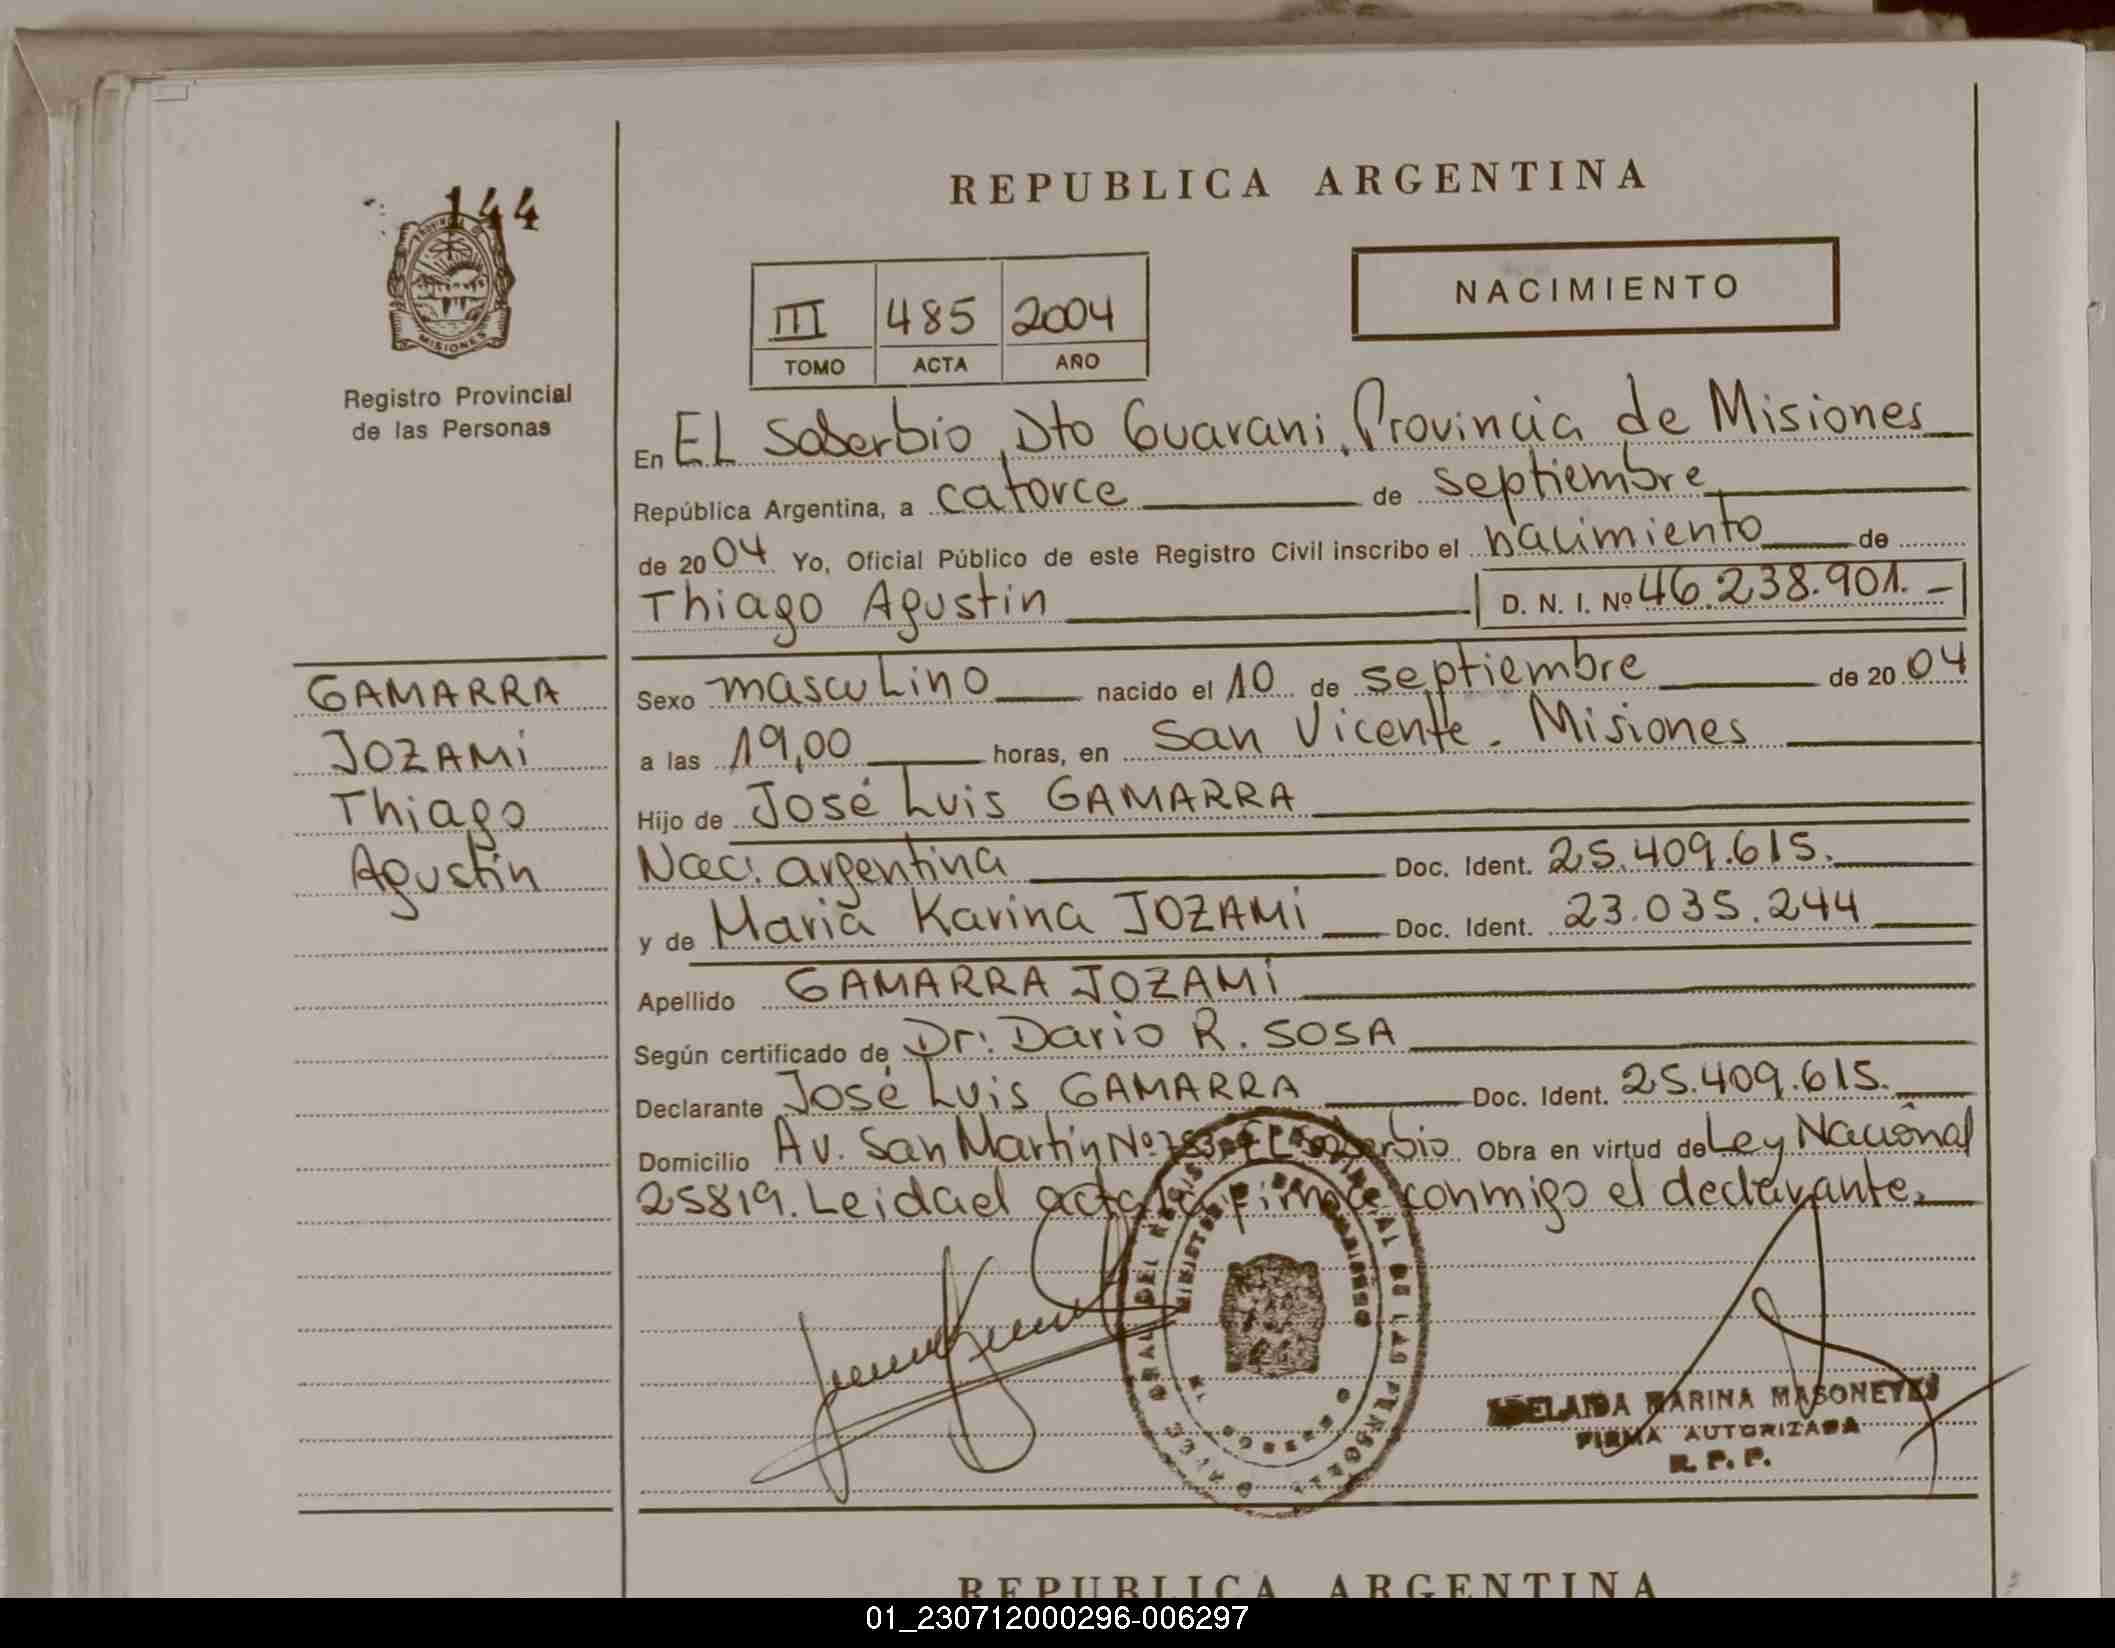 144
MISIONES
Registro Provincial
de las Personas
REPUBLICA ARGENTINA
III 485 2004
TOMO ACTA AÑO
NACIMIENTO
En EL Soberbio, Dto Guarani, Provincia de Misiones
República Argentina, a catorce de septiembre
de 2004 Yo, Oficial Público de este Registro Civil inscribo el nacimiento de
Thiago Agustin D. N. I. Nº 46.238.901.-
GAMARRA
JOZAMI
Thiago
Agustin
Sexo masculino nacido el 10 de septiembre de 2004
a las 19,00 horas, en San Vicente. Misiones
Hijo de José Luis GAMARRA
Nac: argentina Doc. Ident. 25.409.615.
y de Maria Karina JOZAMI Doc. Ident. 23.035.244
Apellido GAMARRA JOZAMI
Según certificado de Dr: Dario R. SOSA
Declarante José Luis GAMARRA Doc. Ident. 25.409.615.
Domicilio Av. San Martin Nº EL Soberbio Obra en virtud de Ley Nacional
25819. Leida el acta la firma conmigo el declarante.
MARINA
FIRMA AUTORIZADA
R. P. P.
REPUBLICA ARGENTINA
01_230712000296-006297